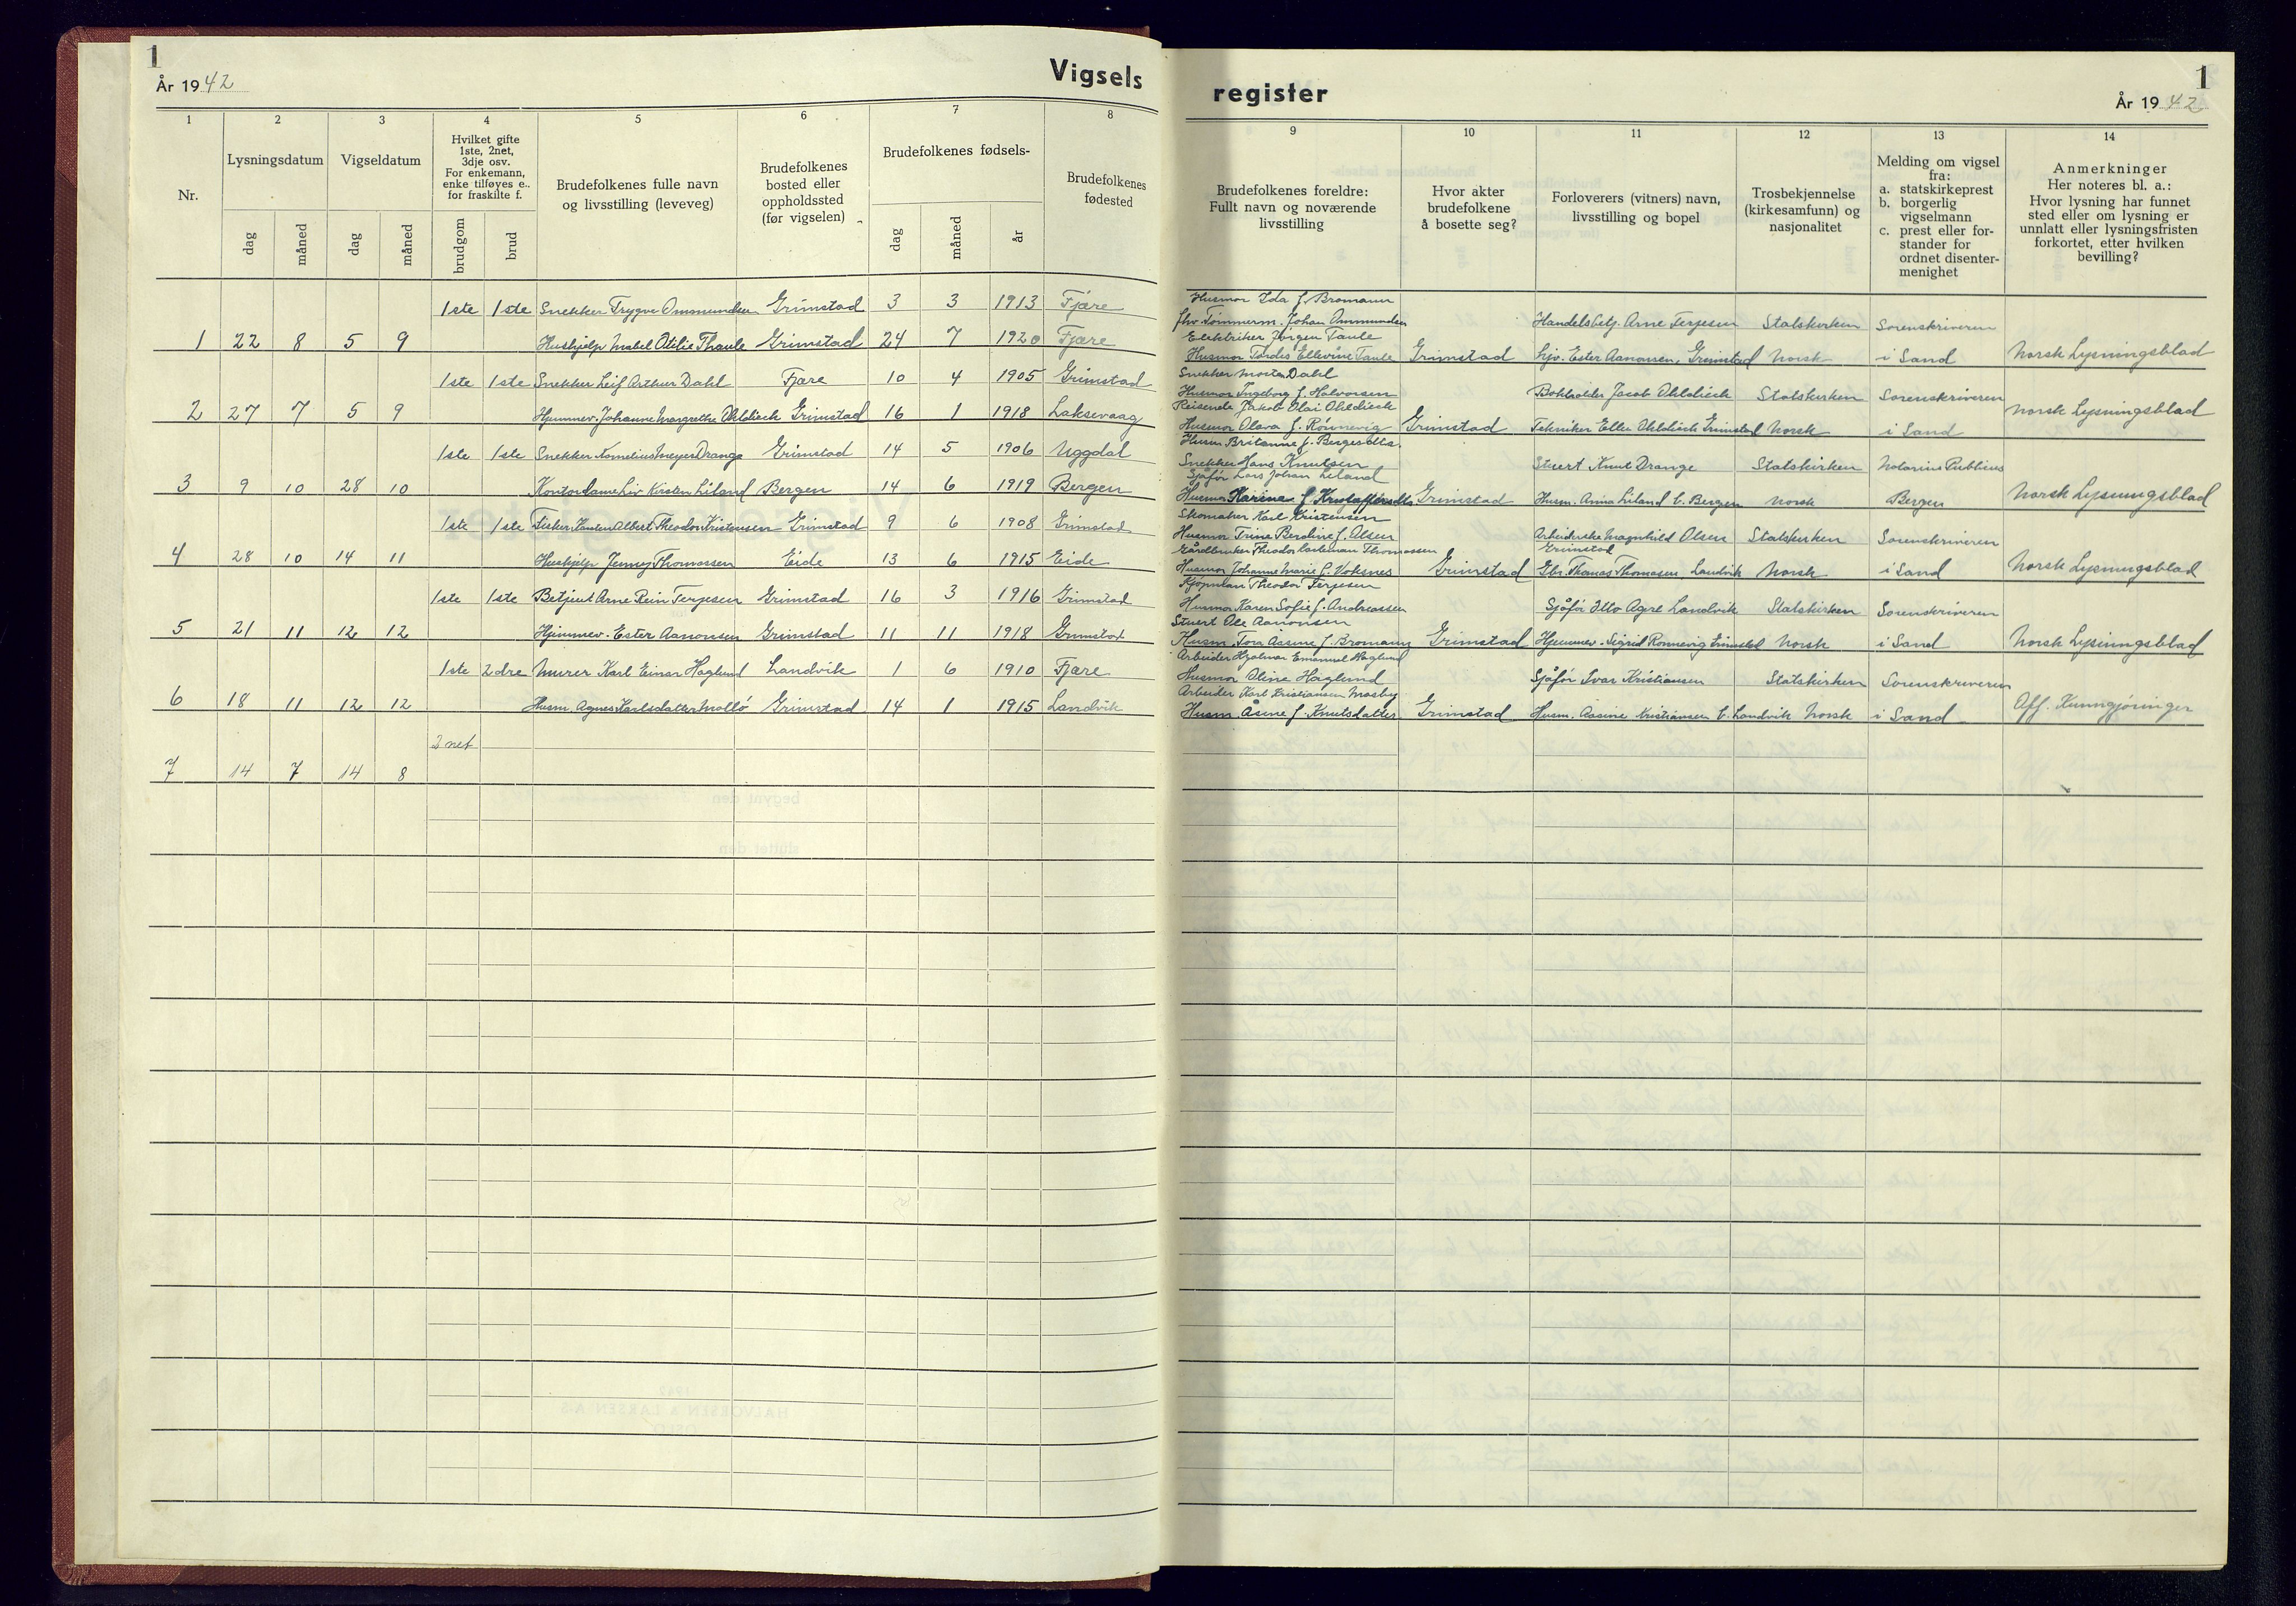 1
År 1942
Vigsels
1
2
3
4
5
6
7
8
Nr.
Lysningsdatum
Vigseldatum
Hvilket gifte
1ste, 2net,
3dje osv.
For enkemann,
enke tilføyes e.,
for fraskilte f.
Brudefolkenes fulle navn
og livsstilling (leveveg)
Brudefolkenes
bosted eller
oppholdssted
(før vigselen)
Brudefolkenes fødsels-
Brudefolkenes
fødested
dag
måned
dag
måned
brudgom
brud
dag
måned
år
1ste 1ste Snekker Trygve Ommundsen Grimstad 3 3 1913 Fjære
1 22 8 5 9 Hushjelp Mabel Otilie Thaule Grimstad 24 7 1920 Fjære
1ste 1ste Snekker Leif Arthur Dahl Fjære 10 4 1905 Grimstad
2 27 7 5 9 Hjemmev. Johanne Margrethe Ohldieck Grimstad 16 1 1918 Laksevaag
1ste 1ste Snekker Kornelius Meyer Drange Grimstad 14 5 1906 Uggdal
3 9 10 28 10 Kontordame Liv Kirsten Liland Bergen 14 6 1919 Bergen
1ste 1ste Fisker Karsten Albert Theodor Kristensen Grimstad 9 6 1908 Grimstad
4 28 10 14 11 Hushjelp Jenny Thomassen Eide 13 6 1915 Eide
1ste 1ste Betjent Arne Rein Terjesen Grimstad 16 3 1916 Grimstad
5 21 11 12 12 Hjemmev. Ester Aanonsen Grimstad 11 11 1918 Grimstad
1ste 2dre Murer Karl Einar Haglund Landvik 1 6 1910 Fjære
6 18 11 12 12 Husm. Agnes Karlsdatter Mollö Grimstad 14 1 1915 Landvik
2net
7 14 7 14 8
register
1
År 1942
9
10
11
12
13
14
Brudefolkenes foreldre:
Fullt navn og noværende
livsstilling
Hvor akter
brudefolkene
å bosette seg?
Forloverers (vitners) navn,
livsstilling og bopel
Trosbekjennelse
(kirkesamfunn) og
nasjonalitet
Melding om vigsel
fra:
a. statskirkeprest
b. borgerlig
vigselmann
c. prest eller for-
stander for
ordnet disenter-
menighet
Anmerkninger
Her noteres bl. a.:
Hvor lysning har funnet
sted eller om lysning er
unnlatt eller lysningsfristen
forkortet, etter hvilken
bevilling?
Husmor Ida f. Bromann
fhv Tömmerm. Johan Ommundsen Handelsbetj. Arne Terjesen Statskirken Sorenskriveren
Elektriker Jörgen Taule
Husmor Tordis Ellevine Taule Grimstad Hjv. Ester Aanonsen, Grimstad Norsk i Sand Norsk Lysningsblad
Snekker Morten Dahl
Husmor Ingeborg f. Halvorsen Bokholder Jacob Ohldieck Statskirken Sorenskriveren
Reisende Jakob Olai Ohldieck
Husmor Olava f. Rönnevig Grimstad Tekniker Ellev Ohldieck Grimstad Norsk i Sand Norsk Lysningsblad
Husm. Britanne f. Bergesdtr.
Snekker Hans Knutsen Stuert Knut Drange Statskirken Notarius Publicus
Sjåför Lars Johan Liland
Husmor Karine f. Kristoffersdtr Grimstad Husm. Anna Liland b. Bergen Norsk Bergen Norsk Lysningsblad
Skomaker Karl Kristensen
Husmor Trine Berdine f. Olsen Arbeiderske Magnhild Olsen Statskirken Sorenskriveren
Grimstad
Gårdbruker Theodor Thomassen
Husmor Johanne Marie f. Voksnes Grimstad Gbr. Thomas Thomassen, Landvik Norsk i Sand Norsk Lysningsblad
Kjöpman Theodor Terjesen
Husmor Karen Sofie f. Andreassen Sjåför Otto Agre Landvik Statskirken Sorenskriveren
Stuert Ole Aanonsen
Husm. Tora Åsine f. Bromann Grimstad Hjemmev. Sigrid Ronnevig Grimstad Norsk i Sand Norsk Lysningsblad
Arbeider Hjalmar Emanuel Haglund
Husmor Oline Haglund Sjåför Ivar Kristiansen Statskirken Sorenskriveren
Arbeider Karl Kristiansen Mosby
Husm. Åsine f. Knutsdatter Grimstad Husm. Aasine Kristiansen b. Landvik Norsk i Sand Off. Kunngjöringer